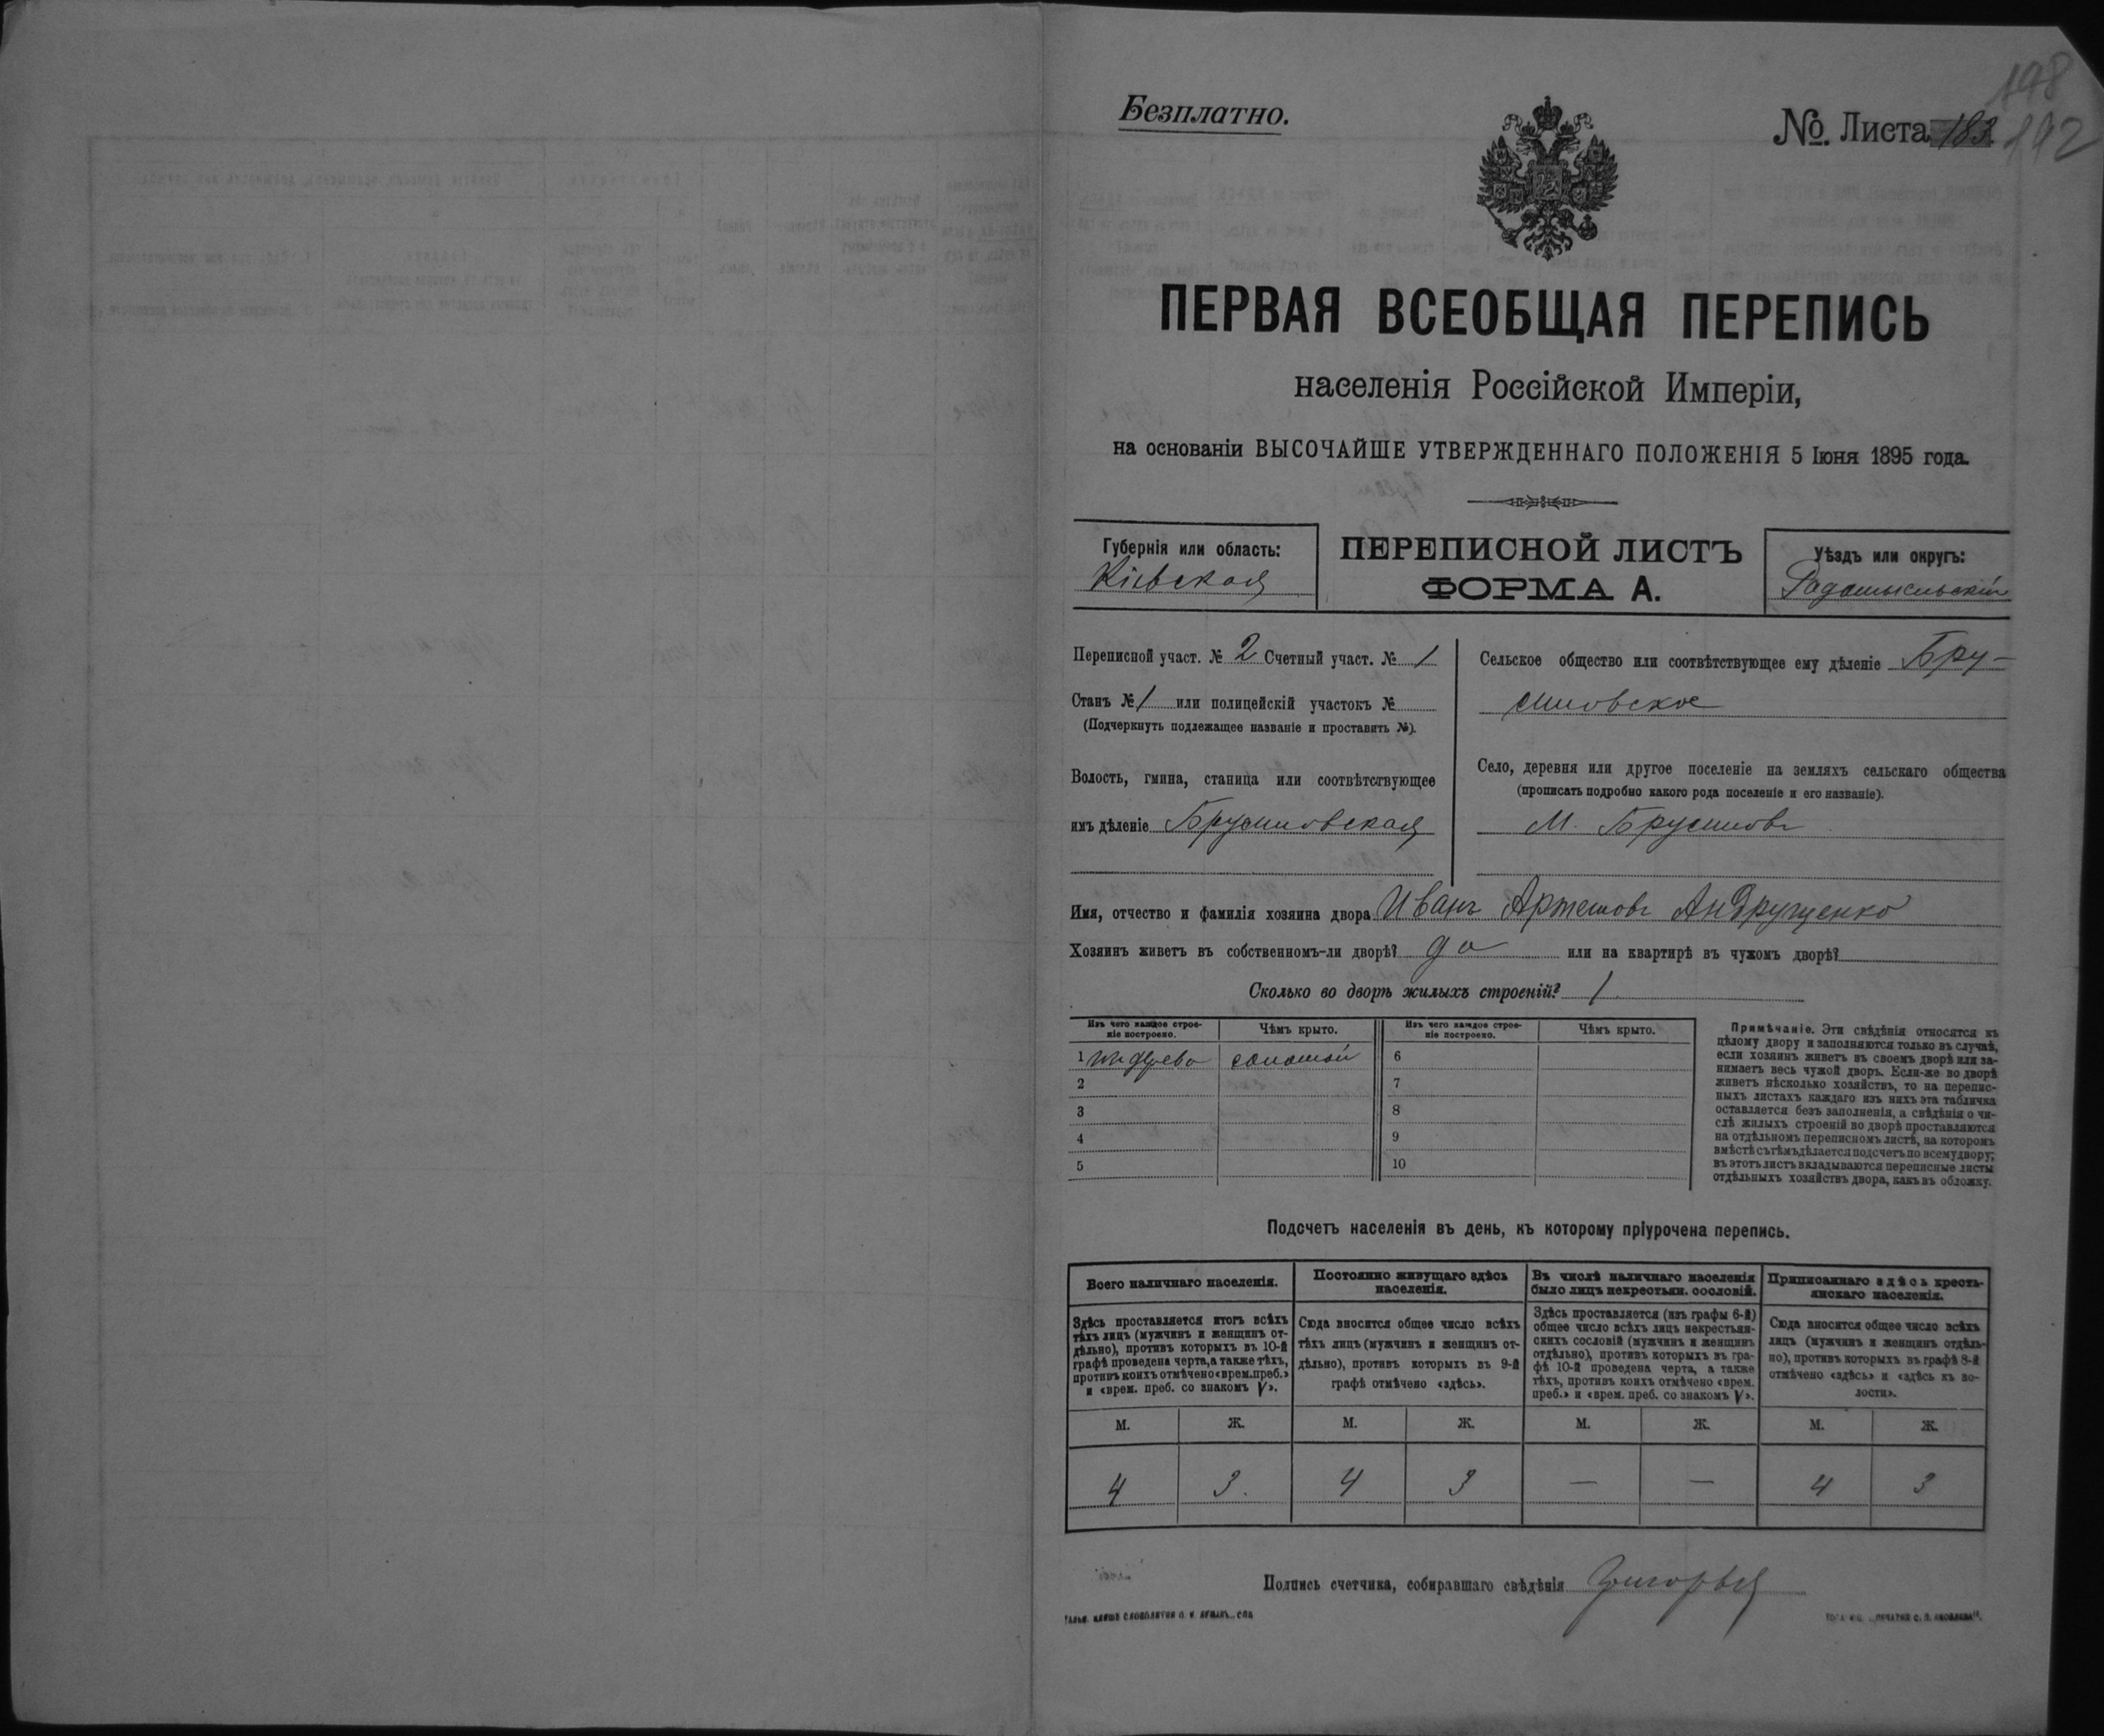 198
Безплатно.
№ Листа 183 192
ПЕРВАЯ ВСЕОБЩАЯ ПЕРЕПИСЬ
населенія Россійской Имперіи,
на основаніи ВЫСОЧАЙШЕ УТВЕРЖДЕННАГО ПОЛОЖЕНІЯ 5 Іюня 1895 года.
Губернія или область:
Кіевская
ПЕРЕПИСНОЙ ЛИСТЪ
ФОРМА А.
Уѣздъ или округъ:
Радомысльскій
Переписной участ. № 2 Счетный участ. № 1
Станъ № 1 или полицейскій участокъ №
(Подчеркнуть подлежащее названіе и проставить №).
Волость, гмина, станица или соотвѣтствующее
имъ дѣленіе Брусиловская
Сельское общество или соотвѣтствующее ему дѣленіе Бру-
силовское
Село, деревня или другое поселеніе на земляхъ сельскаго общества
(прописать подробно какого рода поселеніе и его названіе).
М. Брусиловъ
Имя, отчество и фамилія хозяина двора Иванъ Артемовъ Андрущенко
Хозяинъ живетъ въ собственномъ-ли дворѣ? да или на квартирѣ въ чужомъ дворѣ?
Сколько во дворѣ жилыхъ строеній? 1
Изъ чего каждое строе-
ніе построено.
Чѣмъ крыто.
Изъ чего каждое строе-
ніе построено.
Чѣмъ крыто.
1 изъ дерева соломой 6
2 7
3 8
4 9
5 10
Примѣчаніе. Эти свѣдѣнія относятся къ
цѣлому двору и заполняются только въ случаѣ,
если хозяинъ живетъ въ своемъ дворѣ или за-
нимаетъ весь чужой дворъ. Если-же во дворѣ
живетъ нѣсколько хозяйствъ, то на перепис-
ныхъ листахъ каждаго изъ нихъ эта табличка
оставляется безъ заполненія, а свѣдѣнія о чи-
слѣ жилыхъ строеній во дворѣ проставляются
на отдѣльномъ переписномъ листѣ, на которомъ
вмѣстѣ съ тѣмъ дѣлается подсчетъ по всему двору;
въ этотъ листъ вкладываются переписные листы
отдѣльныхъ хозяйствъ двора, какъ въ обложку.
Подсчетъ населенія въ день, къ которому пріурочена перепись.
Всего наличнаго населенія.
Здѣсь проставляется итогъ всѣхъ
тѣхъ лицъ (мужчинъ и женщинъ от-
дѣльно), противъ которыхъ въ 10-й
графѣ проведена черта, а также тѣхъ,
противъ коихъ отмѣчено «врем. преб.»
и «врем. преб. со знакомъ V».
Постоянно живущаго здѣсь
населенія.
Сюда вносится общее число всѣхъ
тѣхъ лицъ (мужчинъ и женщинъ от-
дѣльно), противъ которыхъ въ 9-й
графѣ отмѣчено «здѣсь».
Въ числѣ наличнаго населенія
было лицъ некрестьян. сословій.
Здѣсь проставляется (изъ графы 6-й)
общее число всѣхъ лицъ некрестьян-
скихъ сословій (мужчинъ и женщинъ
отдѣльно), противъ которыхъ въ гра-
фѣ 10-й проведена черта, а также
тѣхъ, противъ коихъ отмѣчено «врем.
преб.» и «врем. преб. со знакомъ V».
Приписаннаго здѣсь кресть-
янскаго населенія.
Сюда вносится общее число всѣхъ
лицъ (мужчинъ и женщинъ отдѣль-
но), противъ которыхъ въ графѣ 8-й
отмѣчено «здѣсь» и «здѣсь къ во-
лости».
М. Ж. М. Ж. М. Ж. М. Ж.
4 3. 4 3 — — 4 3
Подпись счетчика, собиравшаго свѣдѣнія